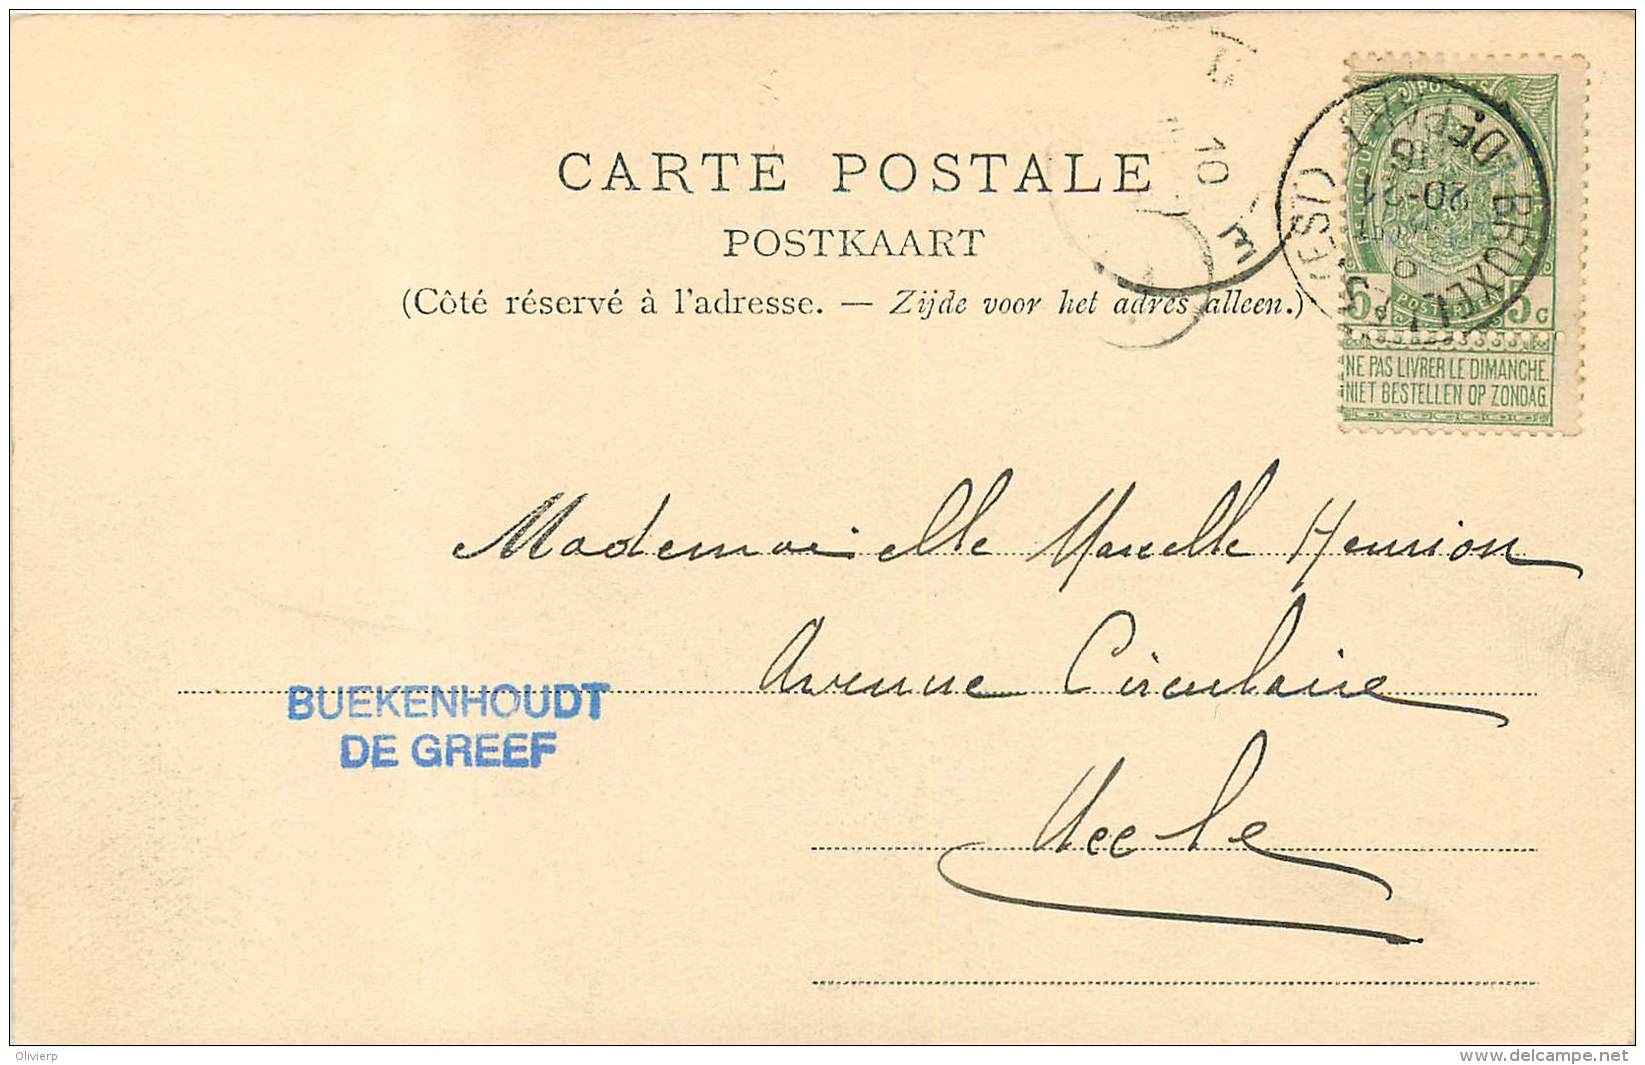 CARTE POSTALE
POSTKAART
(Côté réservé à l'adresse. — Zijde voor het adres alleen.)
POSTES
5 5 C
NE PAS LIVRER LE DIMANCHE.
NIET BESTELLEN OP ZONDAG.
BRUXELLES (EST)
DÉPART
20-21
10
Mademoiselle Marcelle Henrion
Avenue Circulaire
Uccle
BUEKENHOUDT
DE GREEF
Olivierp
www.delcampe.net